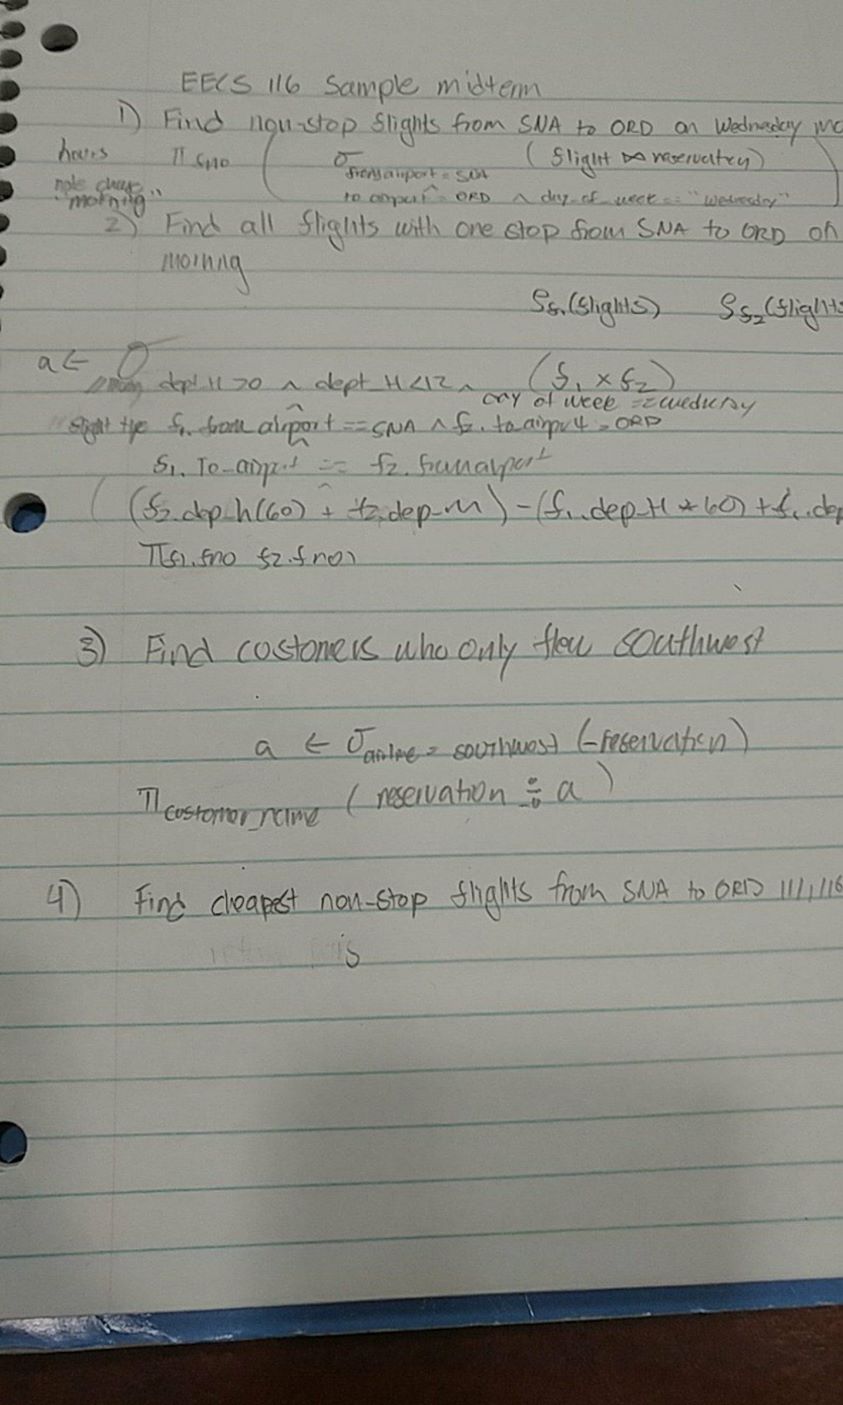 EECS 116 Sample midterm
1) Find non-stop flights from SNA to ORD on Wednesday mo
hours π fno ( σ (flight ⋈ reservation) )
fromairport = SNA
"morning" to airport = ORD ∧ day_of_week = "Wednesday"
2) Find all flights with one stop from SNA to ORD on
morning
ρf1(flights) ρf2(flights
a ← σ
dept H >0 ∧ dept_H <12 ∧ (f1 × f2)
day of week == wednesday
f1.from airport == SNA ∧ f2.to airport = ORD
f1.To-airport == f2.fromairport
(f2.dep_h(60) + f2.dep_m) - (f1.dep_H * 60) + f1.dep
π(f1.fno f2.fno)
3) Find costomers who only flew southwest
a ← σairline = southwest (reservation)
πcustomer_name ( reservation ÷ a )
4) Find cheapest non-stop flights from SNA to ORD 11/1/16
is